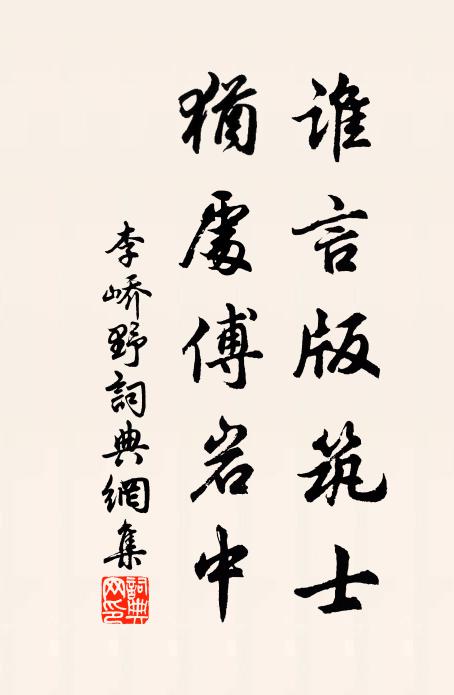 谁言版筑士
猶處傅岩中
李嶠野詞典網集
詞典网印